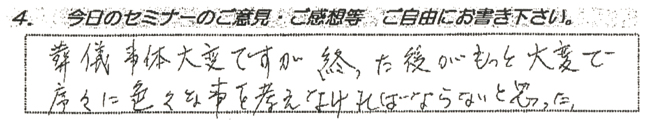 4. 今日のセミナーのご意見・ご感想等 ご自由にお書き下さい。
葬儀事体大変ですが終った後がもっと大変で
々に色々な事を考えなければならないと思った。